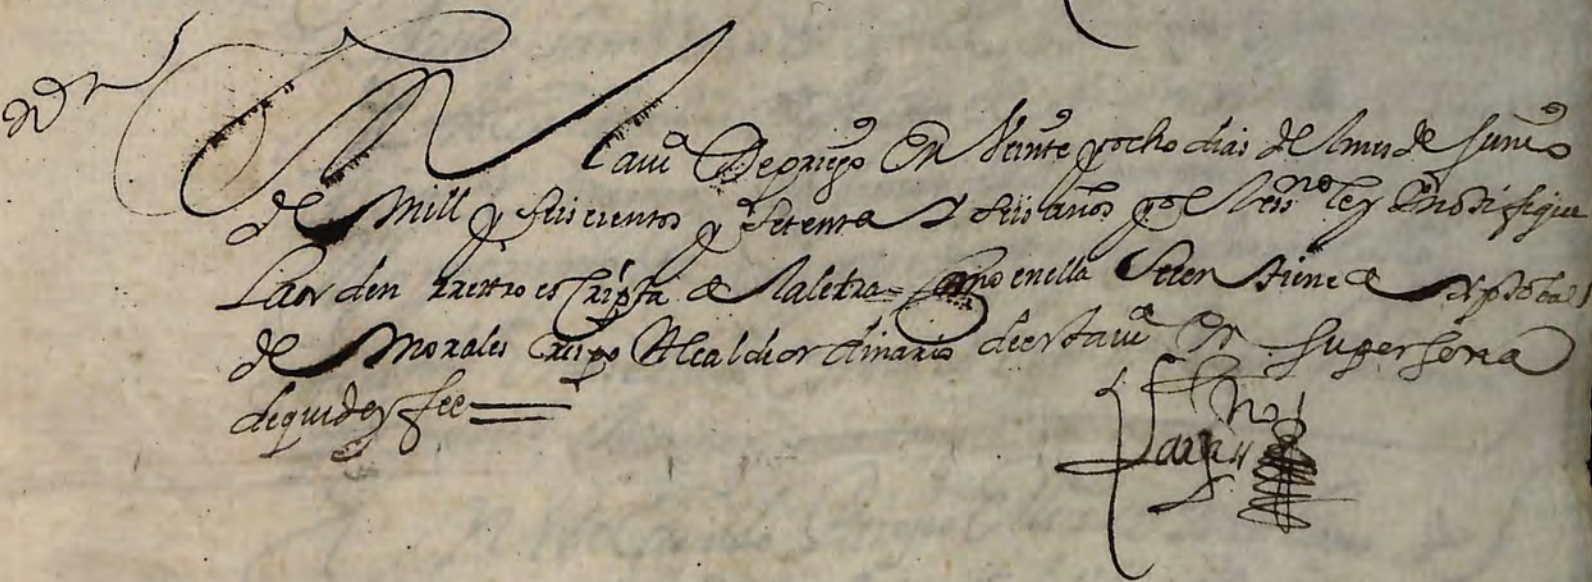 En la villa de priego En Veinte y ocho dias del mes de Junio
de Mill y seiscientos y setenta y seis años yo el essno ley E notifique
La orden retro escripta a la letra como en ella se contiene a Xptobal
de Morales Crespo Alcalde ordinario de esta va En su persona
de que doy fee